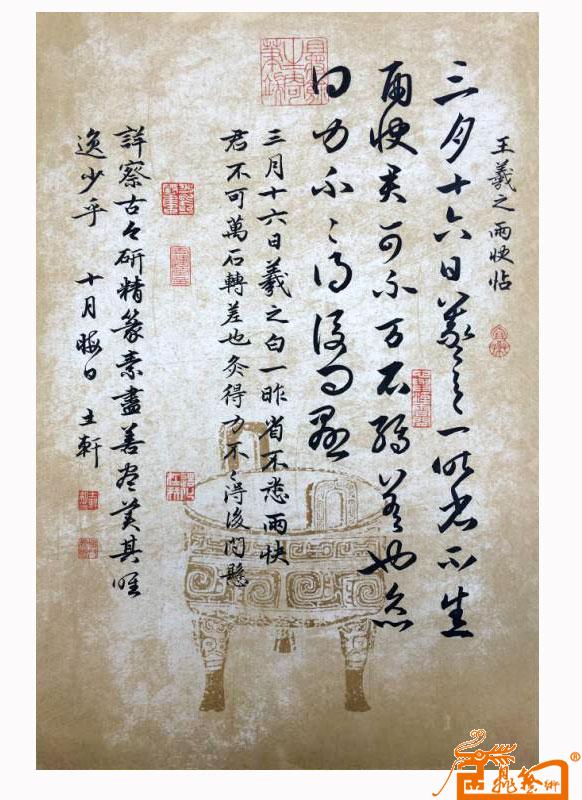 王羲之雨快帖
三月十六日羲之一昨省不
雨快君可不万石转差也灸
得力不〻得后问悬
三月十六日羲之白一昨省不悉雨快
君不可萬石轉差也灸得力不〻得後問懸
詳察古今研精篆素盡善盡美其唯
逸少乎 十月晦日 士軒